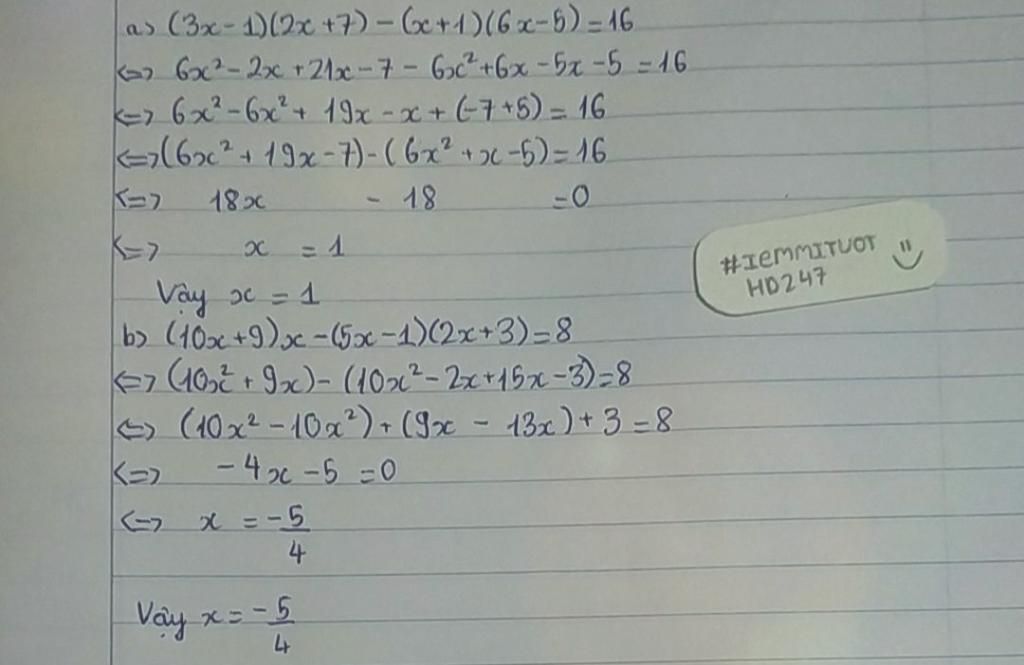 a) (3x-1)(2x+7) - (x+1)(6x-5) = 16
<=> 6x² - 2x + 21x - 7 - 6x² + 6x - 5x - 5 = 16
<=> 6x² - 6x² + 19x - x + (-7+5) = 16
<=> (6x² + 19x - 7) - (6x² + x - 5) = 16
<=> 18x - 18 = 0
<=> x = 1
Vậy x = 1
#IEMMITUOT
HD247
b) (10x+9)x - (5x-1)(2x+3) = 8
<=> (10x² + 9x) - (10x² - 2x + 15x - 3) = 8
<=> (10x² - 10x²) + (9x - 13x) + 3 = 8
<=> -4x - 5 = 0
<=> x = -5/4
Vậy x = -5/4